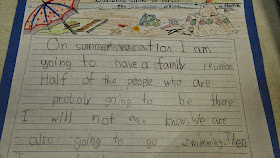 On summer vacation I am
going to have a family reunoe
Half of the people who are
proboly going to be there
I will not even know. We are
also going to go swimming. Then